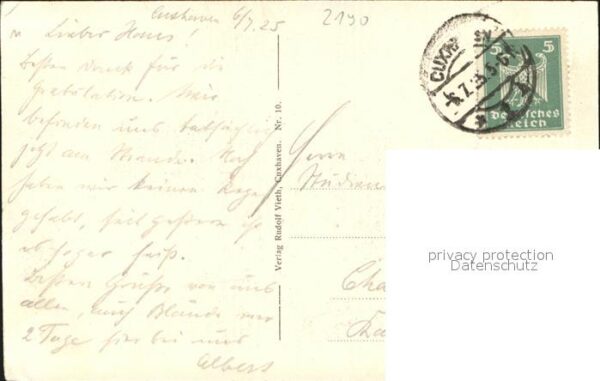 Cuxhaven 6/7.25
2190
Lieber Hans!
Besten Dank für die
Gratulation. Wir
befinden uns
jetzt am Strande. Noch
haben wir keinen Regen
gehabt, seit gestern ist
es sogar heiß.
Besten Grüße von uns
allen, auch
2 Tage hier bei uns
Albert
Verlag Rudolf Vieth, Cuxhaven. Nr. 10.
Herrn
CUXH
-6.7.25
5 5
Deutsches
Reich
privacy protection
Datenschutz